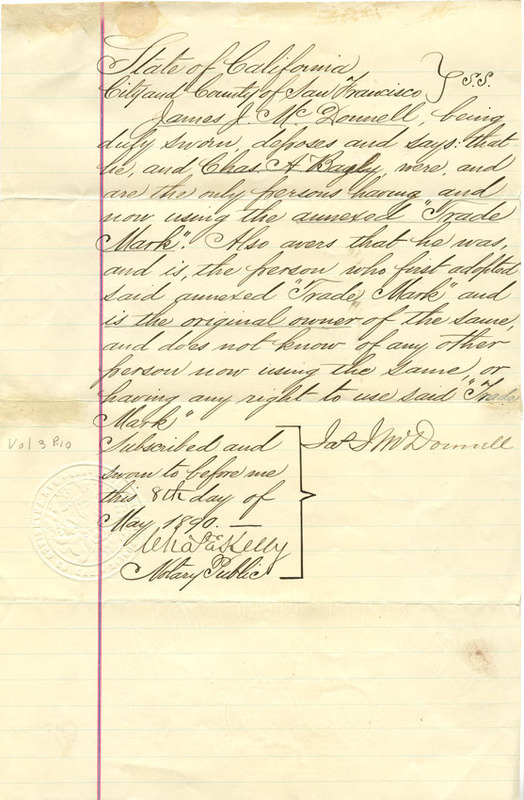 State of California
City and County of San Francisco } S.S.
James J. McDonnell, being
duly sworn, deposes and says: that
he, and Chas. A Bagley, were, and
are the only persons having and
now using the annexed "Trade
Mark". Also avers that he was,
and is, the person who first adopted
said annexed "Trade Mark" and
is the original owner of the same,
and does not know of any other
person now using the same, or
having any right to use said "Trade
Mark"
Subscribed and
sworn to before me
this 8th day of
May, 1890. —
Chas E Kelly
Notary Public
Jas J McDonnell
Vol 3 P.10